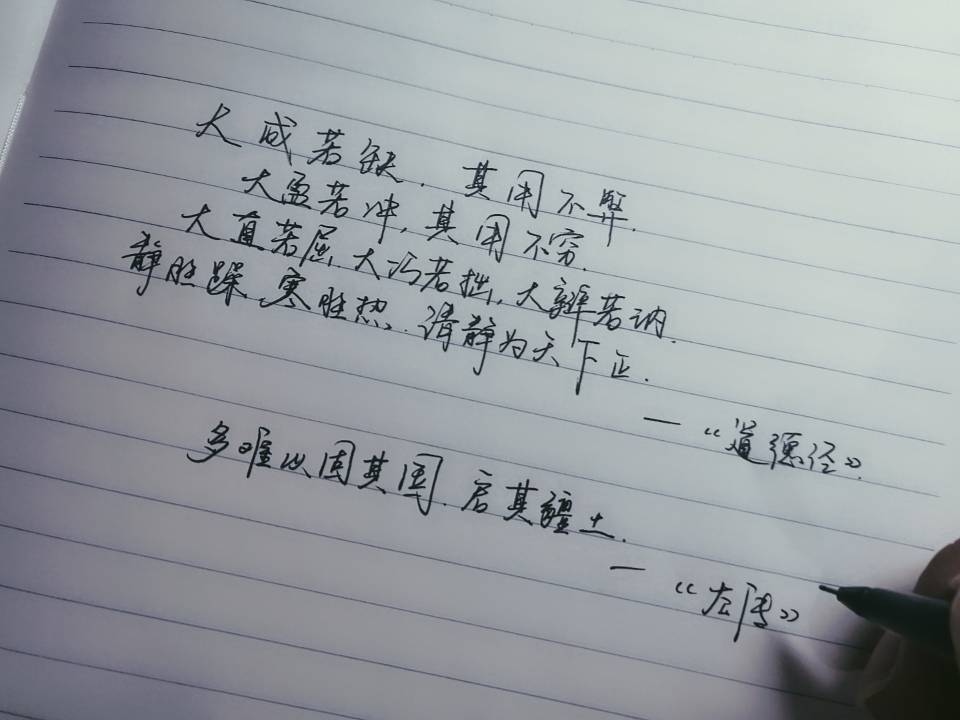 大成若缺，其用不弊.
大盈若冲，其用不穷.
大直若屈，大巧若拙，大辩若讷.
静胜躁，寒胜热，清静为天下正.
—《道德经》.
多难以固其国，启其疆土.
—《左传》